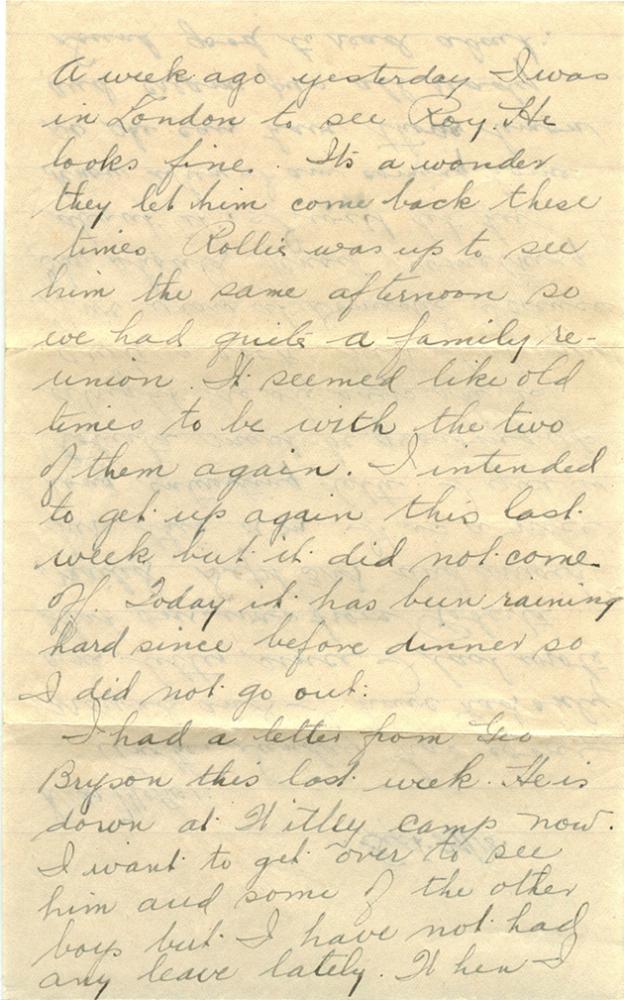 A week ago yesterday I was
in London to see Roy. He
looks fine. Its a wonder
they let him come back these
times Rollie was up to see
him the same afternoon so
we had quite a family re-
union. It seemed like old
times to be with the two
of them again. I intended
to get up again this last
week but it did not come
off. Today it has been raining
hard since before dinner so
I did not go out.
I had a letter from Geo
Bryson this last week. He is
down at Witley camp now.
I want to get over to see
him and some of the other
boys but I have not had
any leave lately. When I